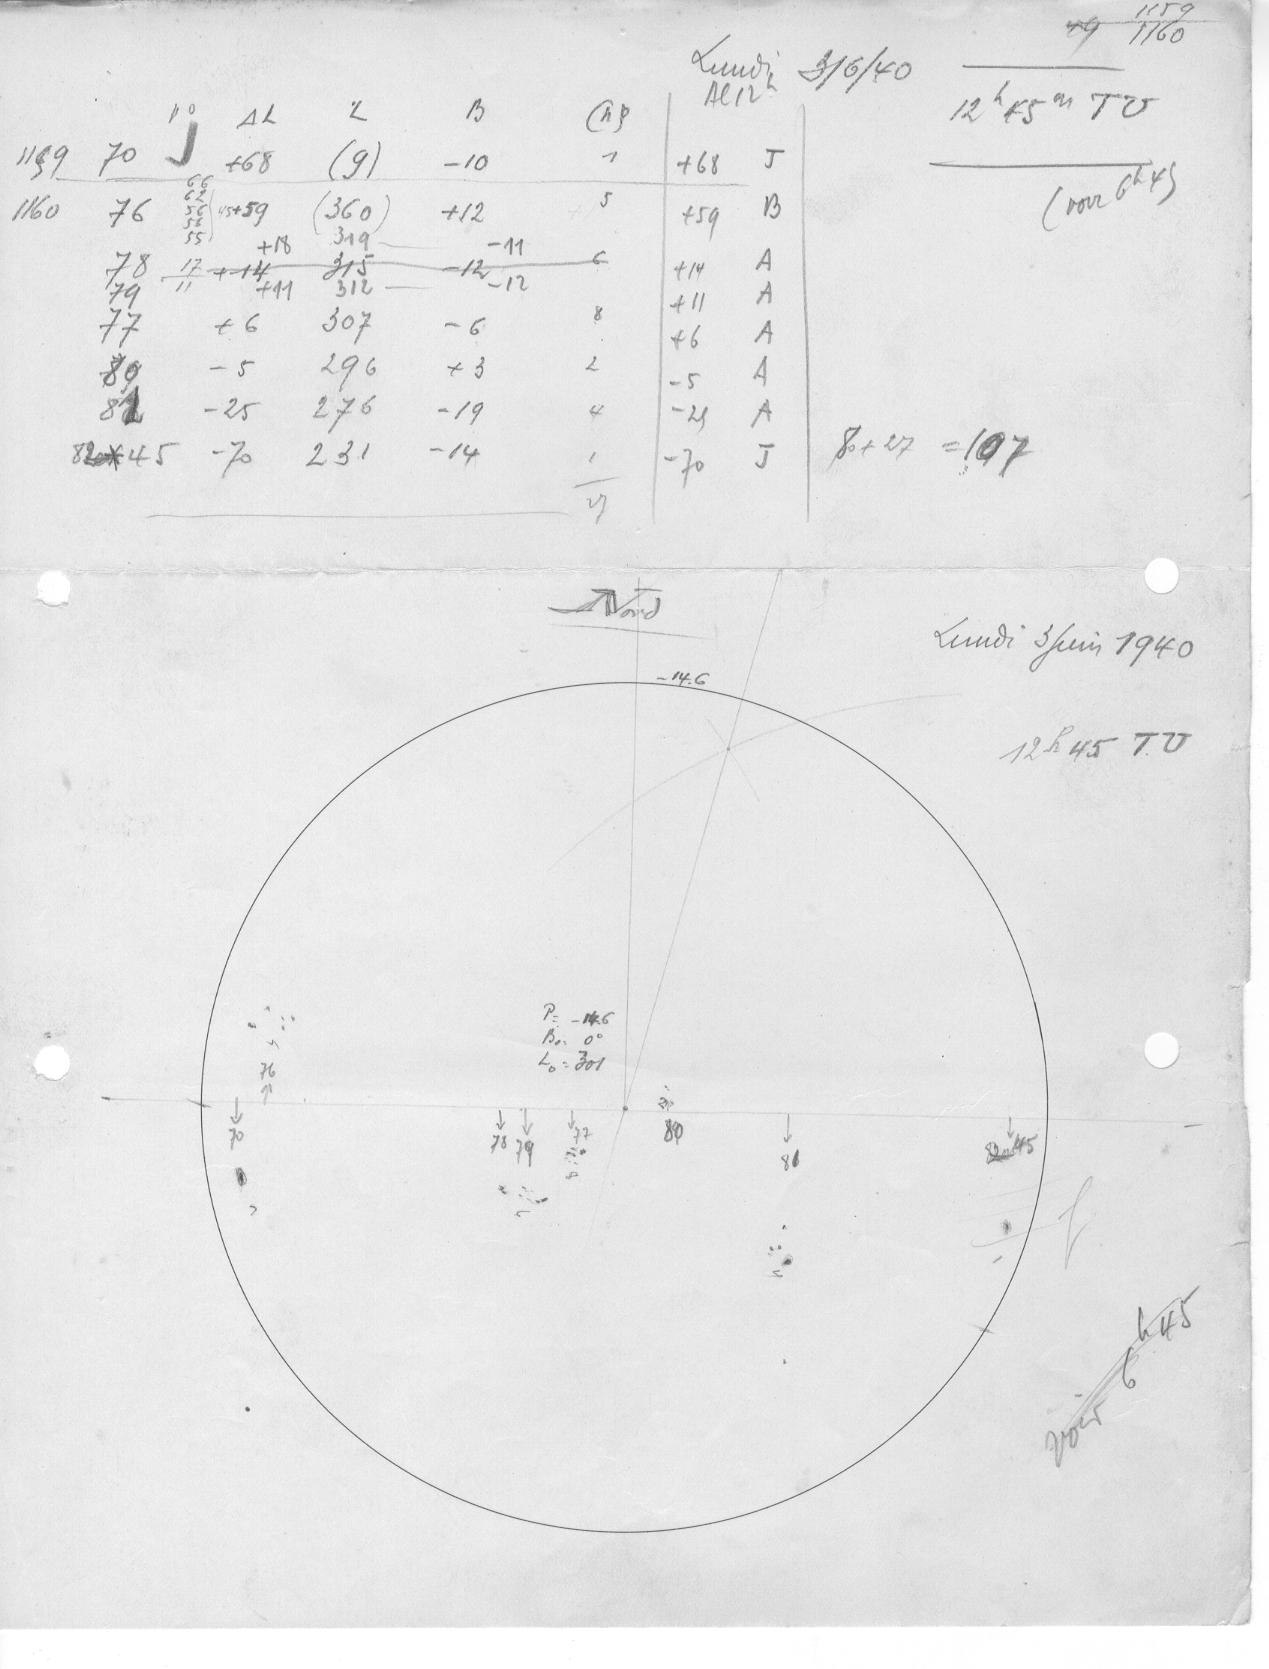 1159
49 1160
Lundi 3/6/40
12h 45m TU
(voir 6h45)
n° ΔL L B
Al 12h
1159 70 J +68 (9) -10 1 +68 J
66
62
56
56
55
1160 76 45+59 (360) +12 5 +59 B
+18 319 -11
78 17 +14 315 -12 6 +14 A
79 11 +11 312 -12 +11 A
77 +6 307 -6 8 +6 A
80 -5 296 +3 2 -5 A
81 -25 276 -19 4 -25 A
82 45 -70 231 -14 1 -70 J
27
80+27 =107
Nord
Lundi 3 Juin 1940
-14.6
12h 45 TU
P= -14.6
B₀= 0°
L₀= 301
76
70
78 79 77 80 81 82 45
voir 6h45